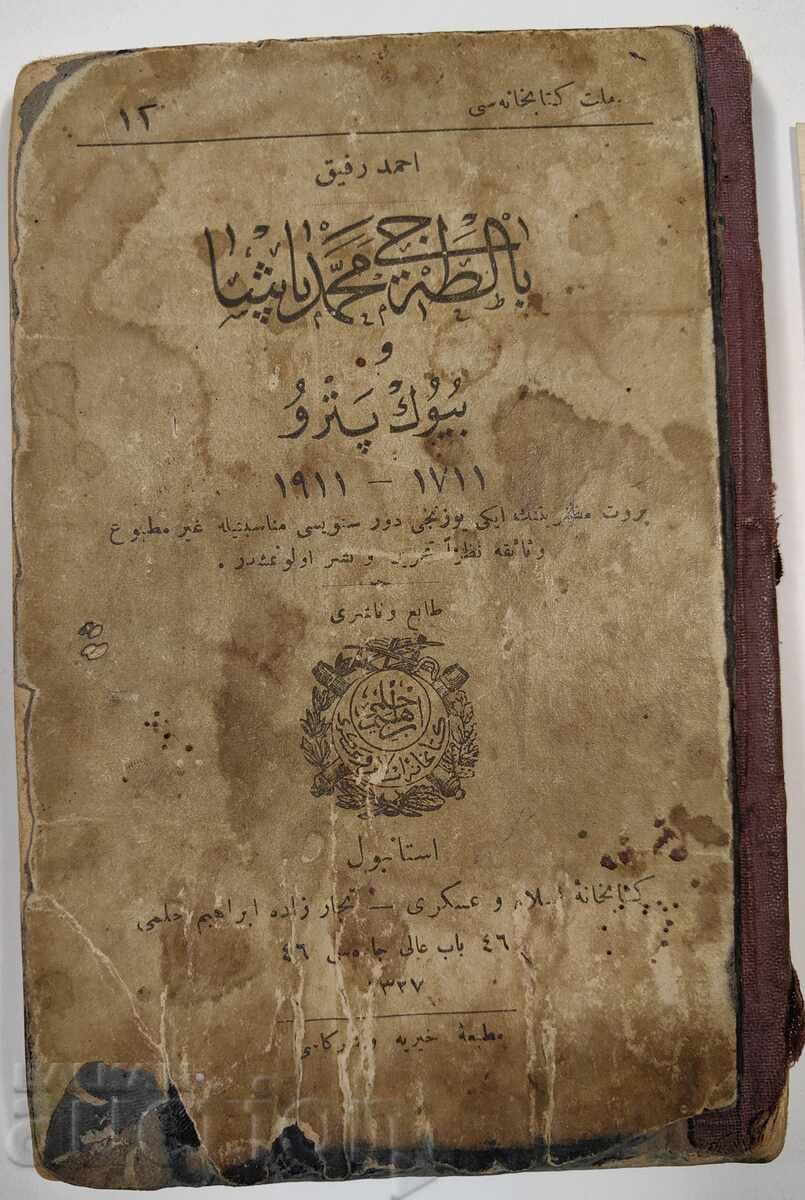 ملت كتابخانه‌سی
١٢
احمد رفیق
بالطه‌جی محمد پاشا
و
بیوك پترو
١٧١١ – ١٩١١
پروت مظفریتنك ایكی یوزنجی دور سنویسی مناسبتیله غیر مطبوع
وثائقه نظراً تحریر و نشر اولونمشدر .
طابع و ناشری
استانبول
كتابخانهٔ اسلام و عسكری — تجار زاده ابراهیم حلمی
٤٦ باب عالی جاده‌سی ٤٦
١٣٢٧
مطبعهٔ خیریه و شركاسی